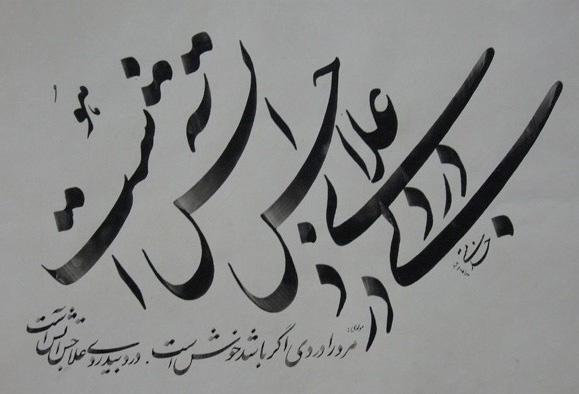 درد بی دردی علاجش آتش است
مولوی:
مرد را دردی اگر باشد خوش است . درد بیدردی علاجش آتش است